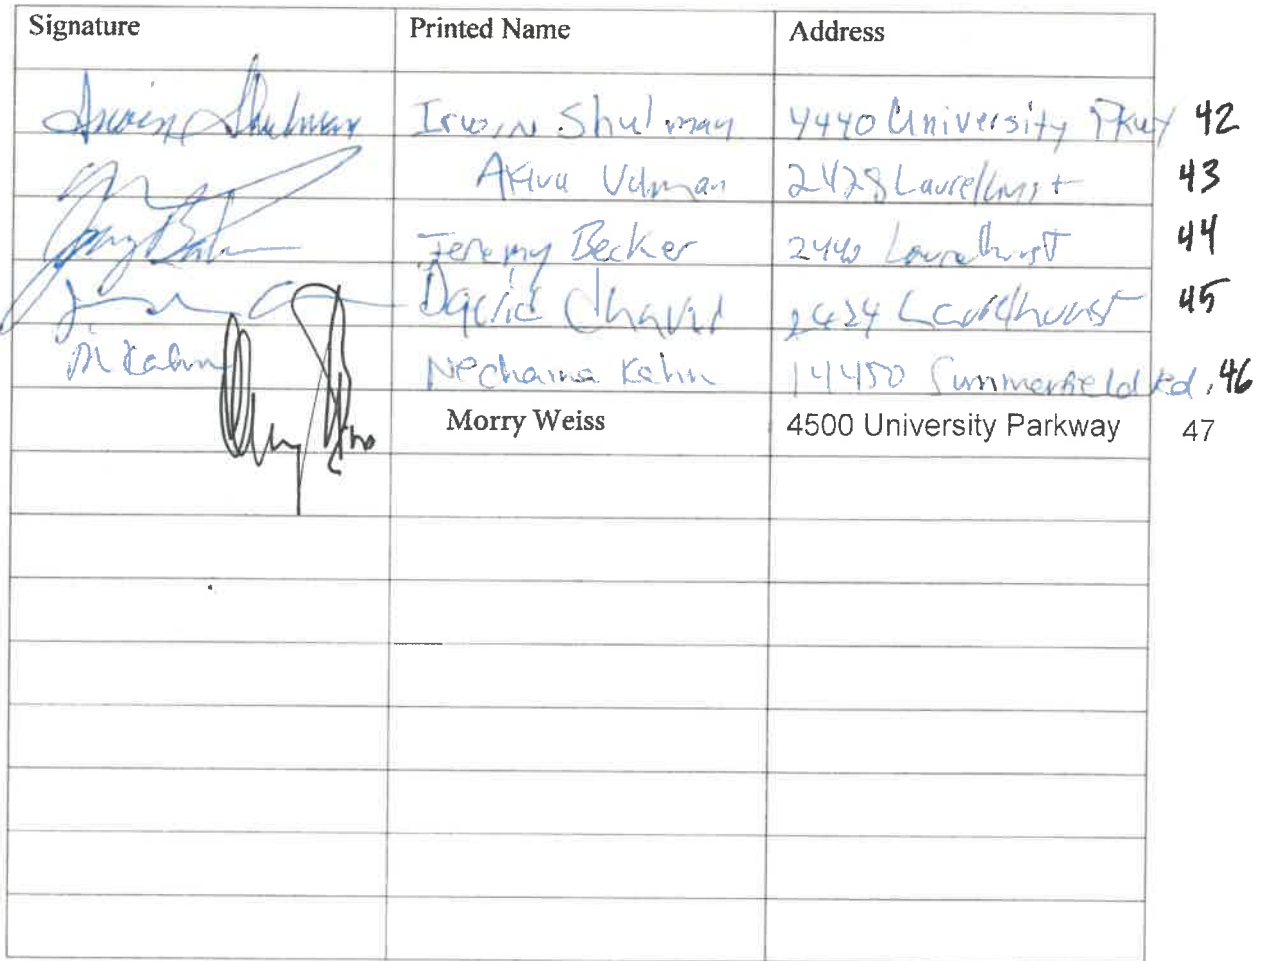 Signature Printed Name Address
Irwin Shulman Irwin Shulman 4440 University Pkwy 42
Akiva 2428 Laurelhurst 43
Jeremy Becker 2440 Laurelhurst 44
David 2424 Laurelhurst 45
N Kahn Nechama Kahn 14450 Summerfield Rd. 46
Morry Weiss 4500 University Parkway 47